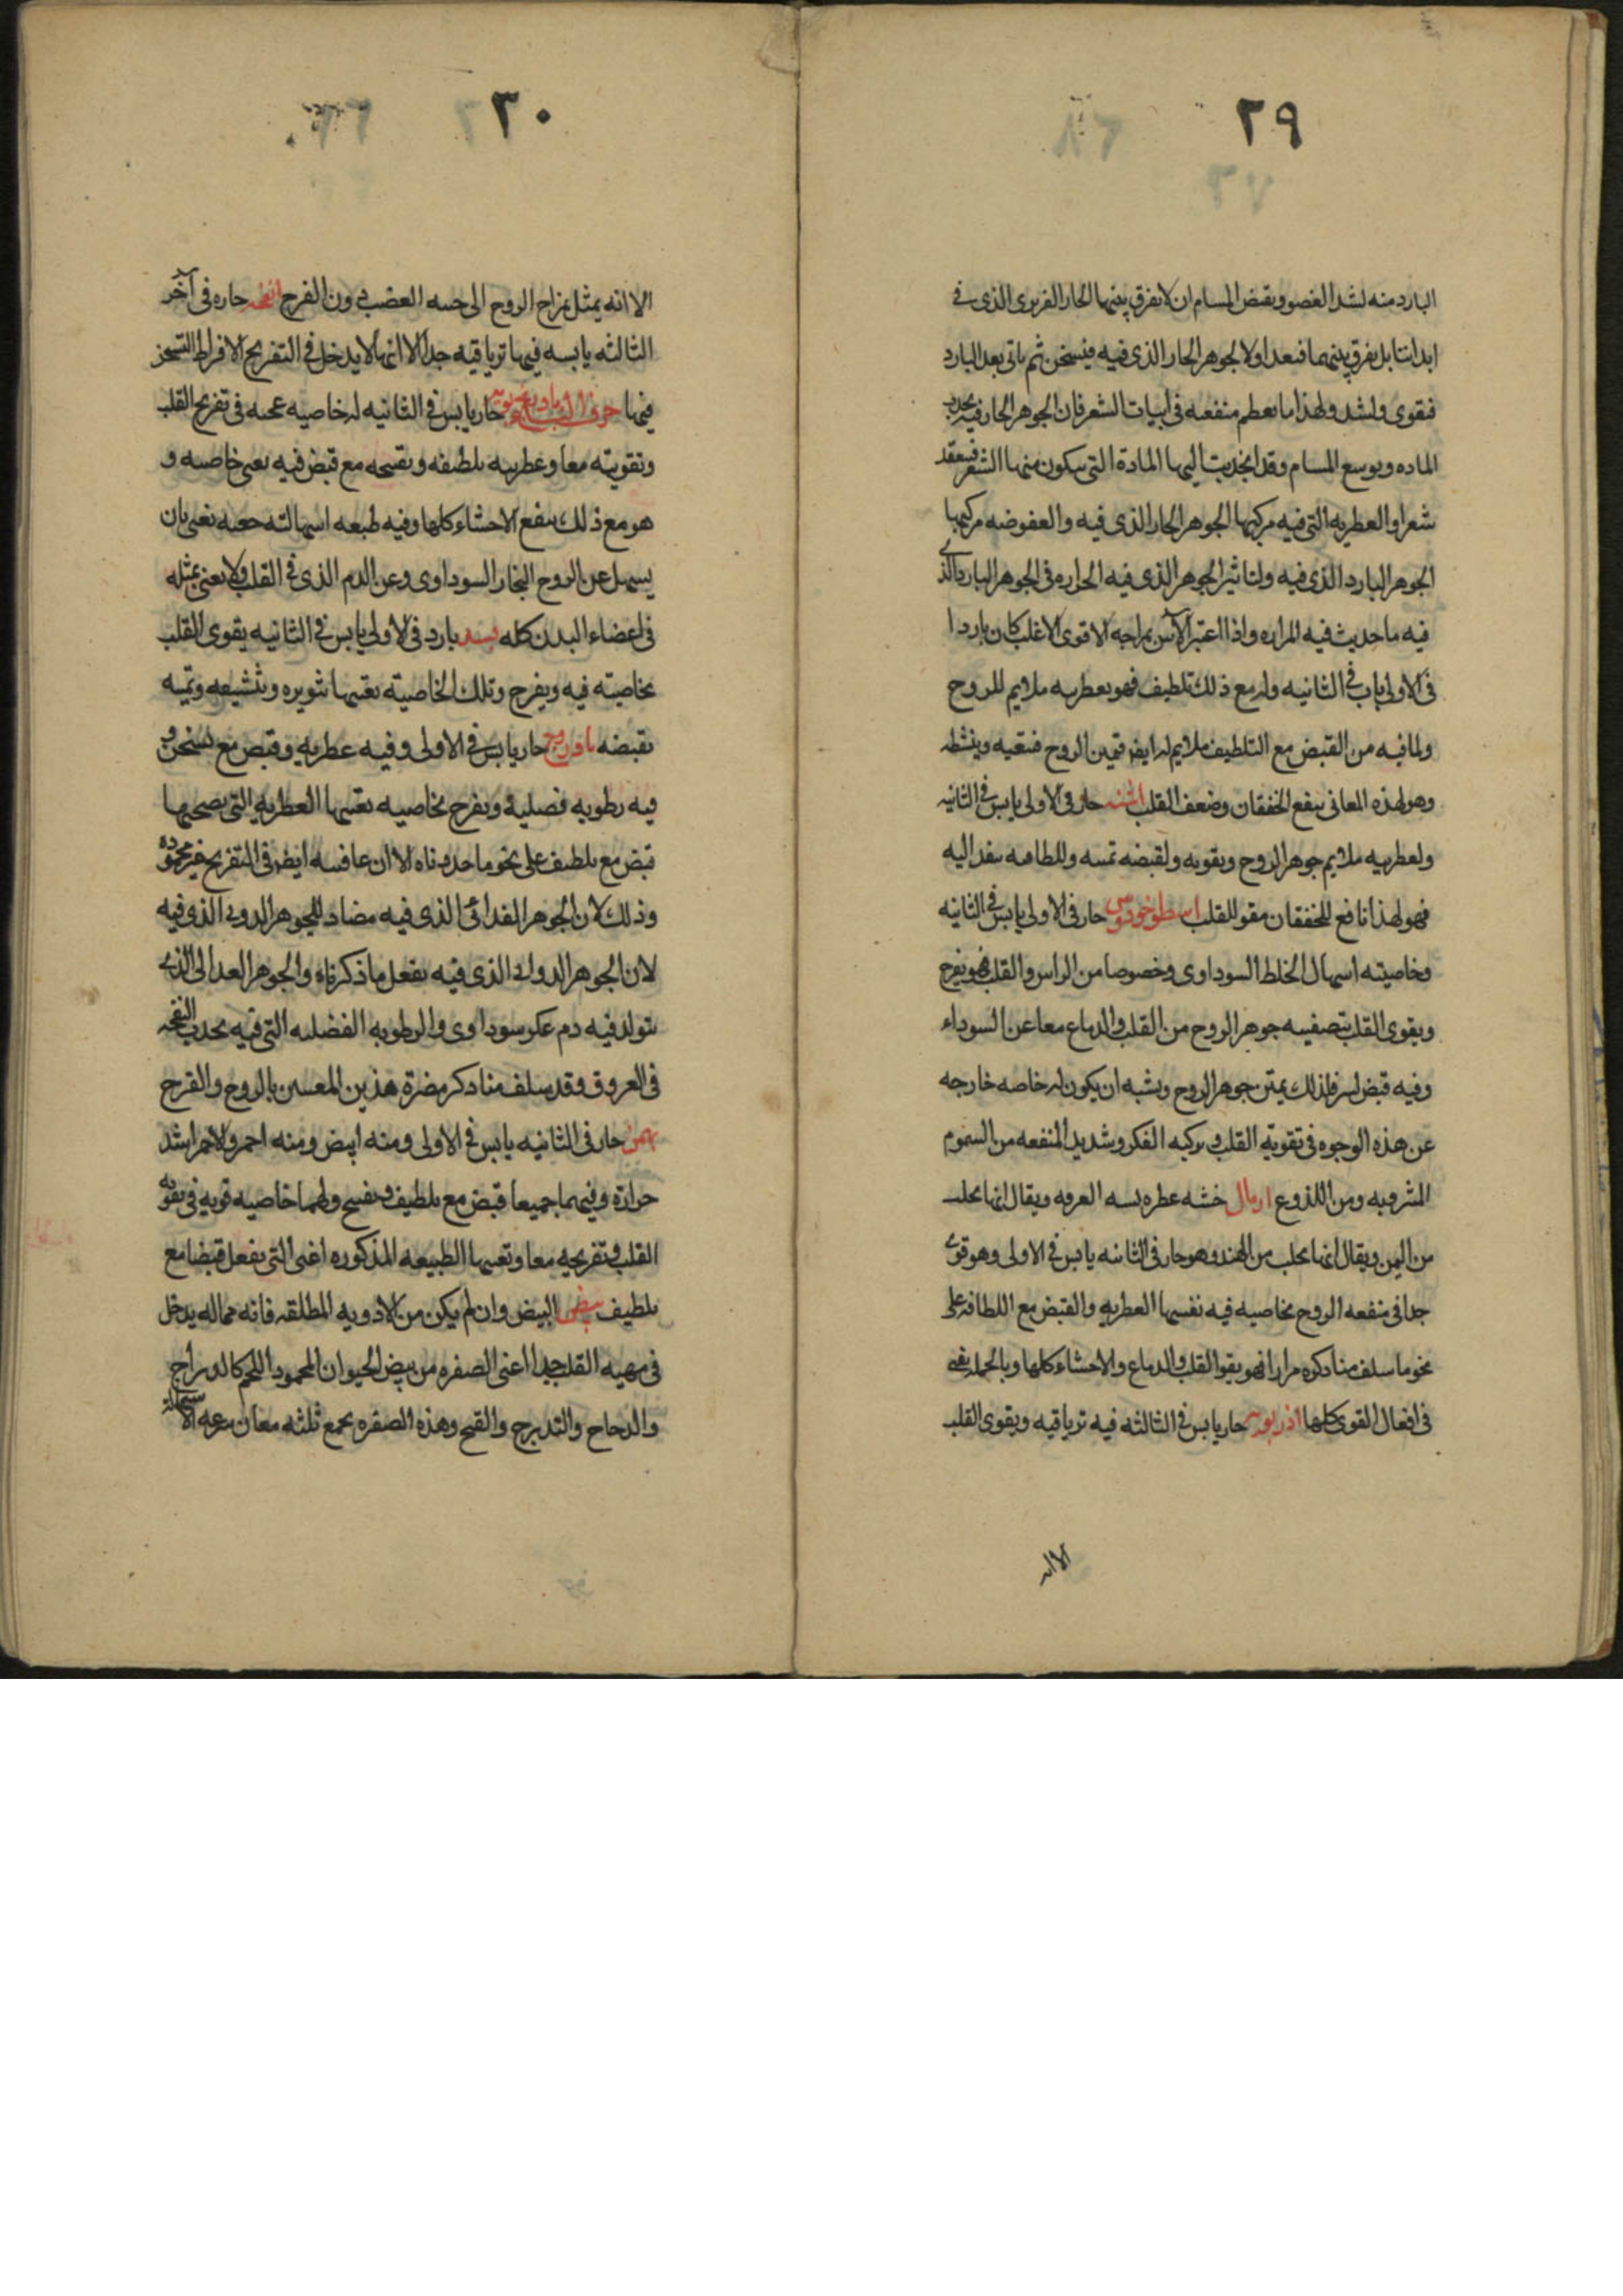 ٢٩
البارد منه لشد العضو وبقبض المسام ان لا يفرق بينهما الحار الغريزى الذى فى
ابداننا بل يفرق بينهما فىعد اولا الجوهر الحار الذى فيه فيسخن ثم ياتى بعد البارد
فىقوى ولشد ولهذا ما يعظم منفعه فى انبات الشعر فان الجوهر الحار فيه يجذب
الماده ويوسع المسام وقد انجذبت اليها المادة التى يتكون منها الشعر فينعقد
شعرا والعطريه التى فيه مركبها الجوهر الحار الذى فيه والعفوصه مركبها
الجوهر البارد الذى فيه ولتاثير الجوهر الذى فيه الحراره فى الجوهر البارد الذى
فيه ما حدث فيه المراره واذا اعتبر الآس بمزاجه الاقوى الاغلب كان باردا
فى الاولى يابس فى الثانيه وله مع ذلك تلطيف فهو بعطريه ملايم للروح
ولما فيه من القبض مع التلطيف ملايم له ايضا فمتين الروح فىنقيه وينشطه
وهو لهذه المعانى ينفع الخفقان وضعف القلب اشنه حار فى الاولى يابس فى الثانيه
ولعطريه ملايم جوهر الروح ويقويه ولقبضه تمتنه وللطافته ينفذ اليه
فهو لهذا نافع للخفقان مقو للقلب اسطوخودوس حار فى الاولى يابس فى الثانيه
وخاصيته اسهال الخلط السوداوى وخصوصا من الراس والقلب فهو يفرح
ويقوى القلب بتصفيه جوهر الروح من القلب والدماغ معا عن السوداء
وفيه قبض يسر فلذلك يمتن جوهر الروح ويشبه ان يكون له خاصه خارجه
عن هذه الوجوه فى تقوية القلب وتزكيه الفكر وشديد المنفعه من السموم
المشروبه ومن اللذوع ارمال خشبه عطره تشبه القرفه ويقال انها تجلب
من اليمن ويقال انها تجلب من الهند وهو حار فى الثانيه يابس فى الاولى وهو قوى
جدا فى منفعه الروح بخاصيه فيه تفسيرها العطريه والقبض مع اللطافه على
نحو ما سلف منا ذكره مرارا فهو يقوا القلب والدماغ والاحشاء كلها وبالجمله نفعه
فى افعال القوى كلها اذربويه حار يابس فى الثالثه فيه ترياقيه ويقوى القلب
الا انه
٣٠
الا انه يميل بمزاج الروح الى جنبه الغضب دون الفرح انفحه حاره فى آخر
الثالثه يابسه فيها ترياقيه جدا الا انها لا يدخل فى التفريح لافراط التسخن
فيها حرف الباء بادرنجبويه حار يابس فى الثانيه له خاصيه عجيبه فى تفريح القلب
وتقويته معا وعطريه بلطيفه وتفتيحه مع قبض فيه يعين خاصيته و
هو مع ذلك ينفع الاحشاء كلها وفيه طبعه اسهاليه خفيه تعين بان
يسهل عن الروح البخار السوداوى وعن الدم الذى فى القلب ولا يعنى بمثله
فى اعضاء البدن كله بسد بارد فى الاولى يابس فى الثانيه يقوى القلب
بخاصيته فيه ويفرح وتلك الخاصيته يعينها تنويره وتشيعه وتمتينه
بقبضه بادروج حار يابس فى الاولى وفيه عطريه وقبض مع تسخين و
فيه رطوبه فضليه ويفرح بخاصيه تعينها العطريه التى يصحبها
قبض مع بلطيف على نحو ما حددناه الا ان عاقبته ايضا فى التفريح غير محموده
وذلك لان الجوهر الغدائى الذى فيه مضاد للجوهر الدوى الذى فيه
لان الجوهر الدوائى الذى فيه يفعل ما ذكرناه والجوهر الغدائى الذى
يتولد فيه دم عكر سوداوى والرطوبه الفضليه التى فيه يحدث النفخه
فى العروق وقد سلف منا ذكر مضرة هذين المعنيين بالروح والفرح
بهمن حار فى الثانيه يابس فى الاولى ومنه ابيض ومنه احمر والاحمر اشد
حرارة وفيهما جميعا قبض مع بلطيف وتفتيح ولهما خاصيه قويه فى تقويه
القلب وتفريحه معا وتعينها الطبيعه المذكوره اعنى التى يفعل قبضا مع
بلطيف بيض البيض وان لم يكن من الادويه المطلقه فانه مما له يدخل
فى مهيه القلب جدا اعنى الصفره من بيض الحيوان المحمود اللحم كالدراج
والدجاج والتدرج والقبج وهذه الصفره تجمع ثلثه معان سرعه الاستحاله